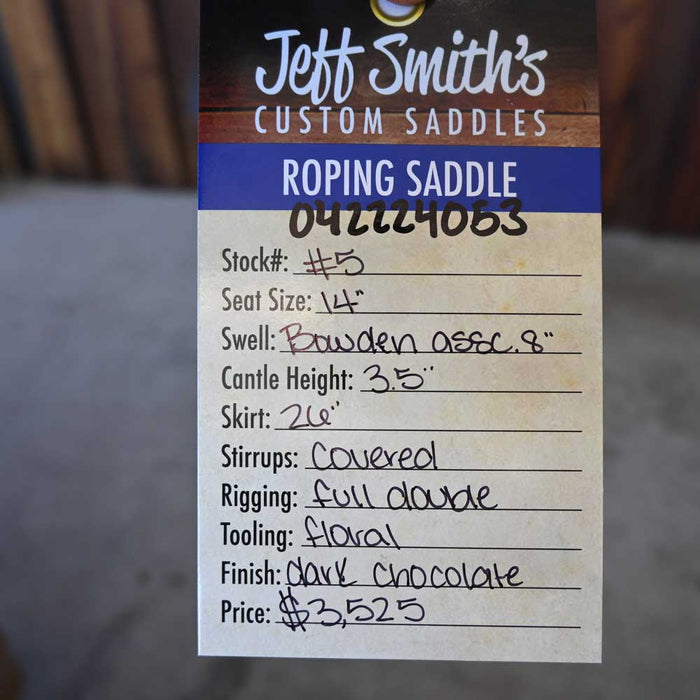 Jeff Smith's
CUSTOM SADDLES
ROPING SADDLE
042224053
Stock#: #5
Seat Size: 14"
Swell: Bowden assc. 8"
Cantle Height: 3.5"
Skirt: 26"
Stirrups: Covered
Rigging: full double
Tooling: floral
Finish: dark chocolate
Price: $3,525